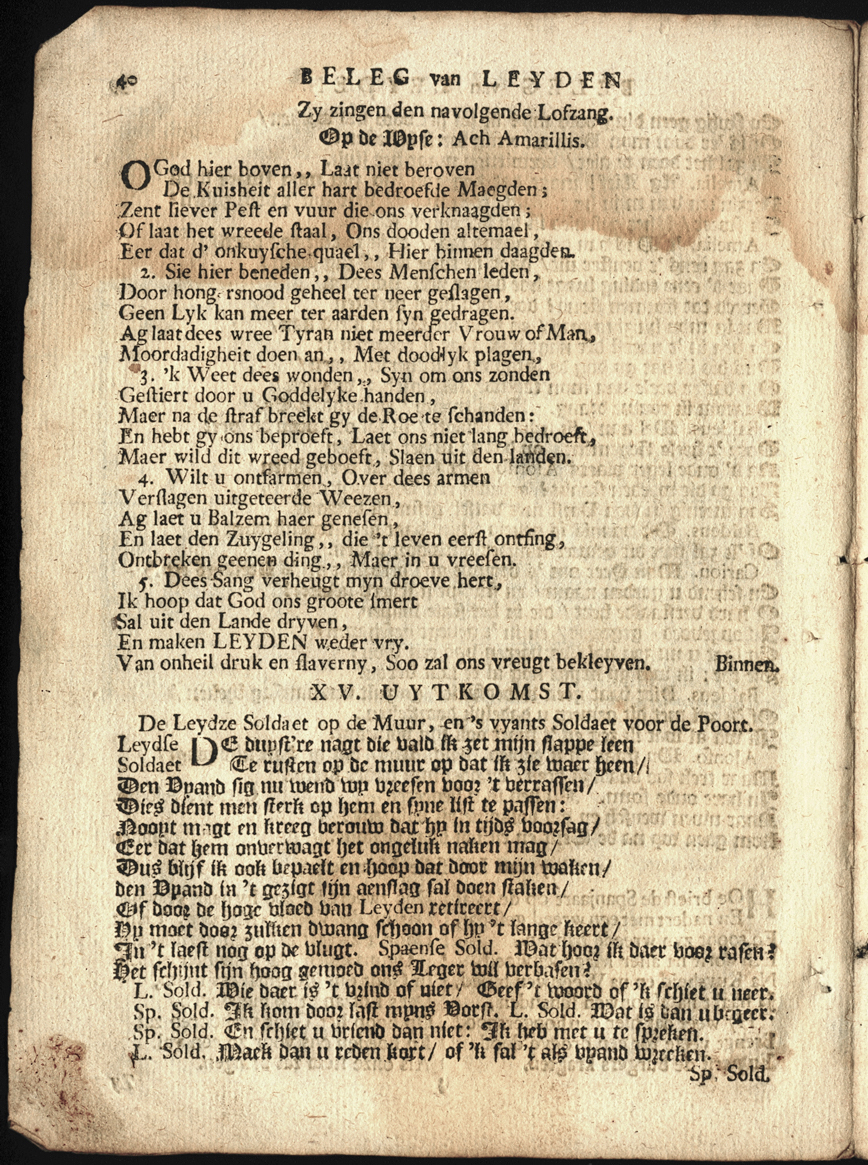 40 BELEG van LEYDEN
Zy zingen den navolgende Lofzang.
Op de Wyse: Ach Amarillis.
O God hier boven,, Laat niet beroven
De Kuisheit aller hart bedroefde Maegden;
Zent liever Pest en vuur die ons verknaagden;
Of laat het wreede staal, Ons dooden altemael,
Eer dat d' onkuysche quael,, Hier binnen daagden.
2. Sie hier beneden,, Dees Menschen leden,
Door hongersnood geheel ter neer geslagen,
Geen Lyk kan meer ter aarden syn gedragen.
Ag laat dees wree Tyran niet meerder Vrouw of Man,
Moordadigheit doen an,, Met doodlyk plagen,
3. 'k Weet dees wonden,, Syn om ons zonden
Gestiert door u Goddelyke handen,
Maer na de straf breekt gy de Roe te schanden:
En hebt gy ons beproeft, Laet ons niet lang bedroeft,
Maer wild dit wreed geboeft, Slaen uit den landen.
4. Wilt u ontfarmen, Over dees armen
Verslagen uitgeteerde Weezen,
Ag laet u Balzem haer genesen,
En laet den Zuygeling,, die 't leven eerst ontfing,
Ontbreken geenen ding,, Maer in u vreesen.
5. Dees Sang verheugt myn droeve hert,
Ik hoop dat God ons groote smert
Sal uit den Lande dryven,
En maken LEYDEN weder vry.
Van onheil druk en slaverny, Soo zal ons vreugt bekleyven. Binnen.
XV. UYTKOMST.
De Leydze Soldaet op de Muur, en 's vyants Soldaet voor de Poort.
Leydse DE duyst're nagt die vald ik zet mijn slappe leen
Soldaet Te rusten op de muur op dat ik zie waer heen/
Den Vyand sig nu wend wy vreesen voor 't verrassen/
Dies dient men sterk op hem en syne list te passen:
Nooyt magt en kreeg berouw dat hy in tijds voorsag/
Eer dat hem onverwagt het ongeluk naken mag/
Dus blijf ik ook bepaelt en hoop dat door mijn waken/
den Vyand in 't gezigt sijn aenslag sal doen staken/
Of door de hoge vloed van Leyden retireert/
Hy moet door zulken dwang schoon of hy 't lange keert/
In 't laest nog op de vlugt. Spaense Sold. Wat hoor ik daer voor rasen?
Het schijnt sijn hoog gemoed ons Leger wil verbasen?
L. Sold. Wie daer is 't vrind of niet/ Geef 't woord of 'k schiet u neer.
Sp. Sold. Ik kom door last myns Vorst. L. Sold. Wat is dan u begeer.
Sp. Sold. En schiet u vriend dan niet: Ik heb met u te spreken.
L. Sold. Maek dan u reden kort/ of 'k sal 't als vyand wreeken.
Sp. Sold.